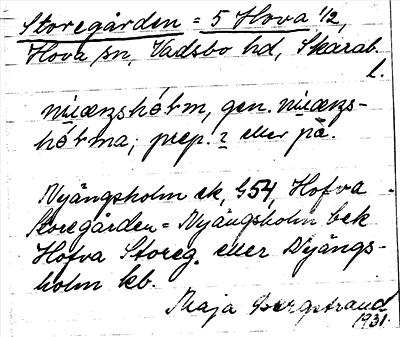 Storegården = 5 Hova 1/2,
Hova sn, Vadsbo hd, Skarab.
l.
gen.
prep. i eller på.
Nyängsholm ek, G54, Hofva
Storegården = Nyängsholm bek
Hofva Storeg. eller Nyängs-
holm kb.
Maja Bergstrand
1931.